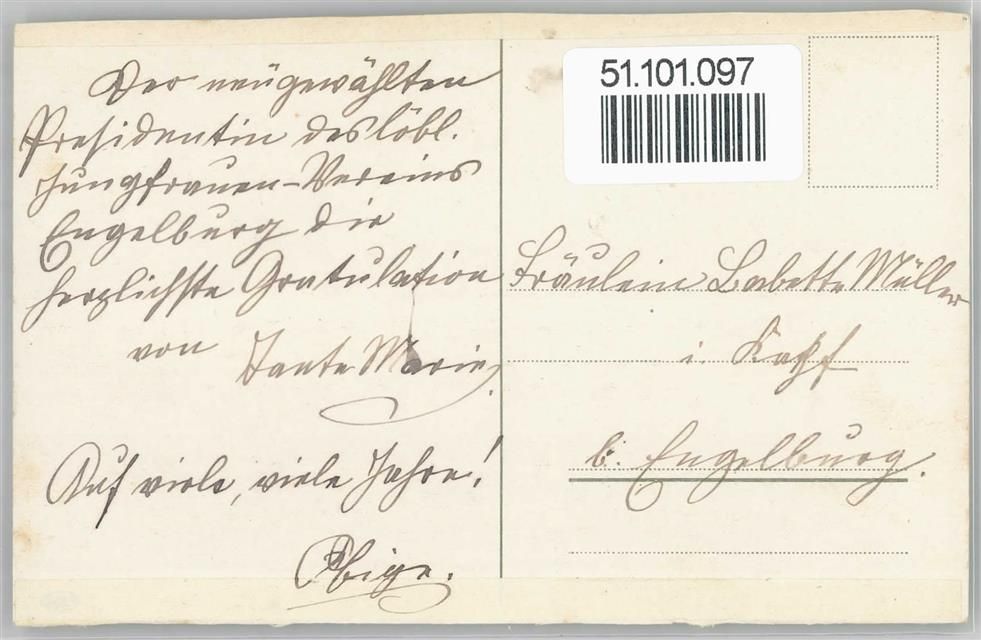 Der neugewählten
Presidentin des löbl.
Jungfrauen-Vereins
Engelburg die
herzlichste Gratulation
von Tante Marie.
Auf viele, viele Jahre!
Obige.
51.101.097
Fräulein Babette Müller
i. Kapf
b. Engelburg.